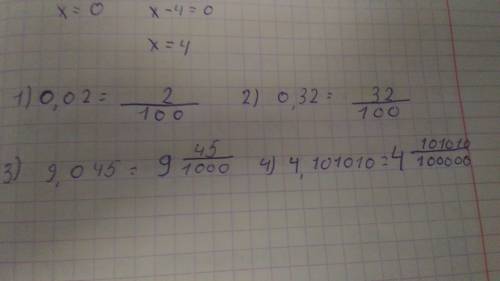 x = 0 x - 4 = 0
x = 4
1) 0,02 = 2/100 2) 0,32 = 32/100
3) 9,045 = 9 45/1000 4) 4,101010 = 4 101010/100000